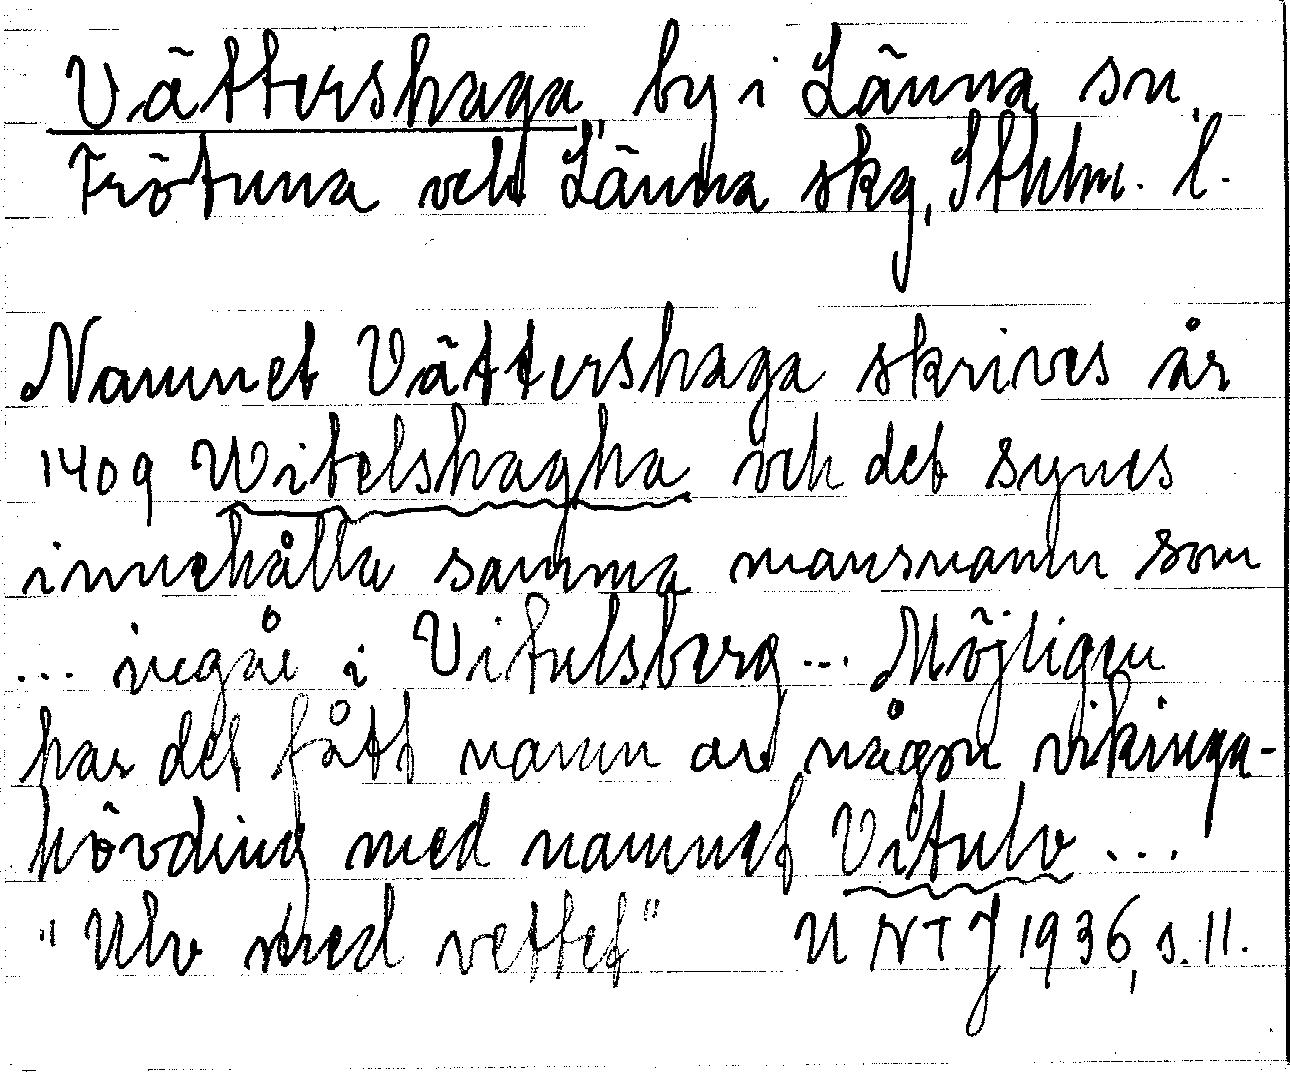 Vättershaga, by i Länna sn,
Frötuna och Länna skg, Sthlm. l.
Namnet Vättershaga skrives år
1409 Witelshagha och det synes
innehålla samma mansnamn som
... ingår i Vitulsberg ... Möjligen
har det fått namn av någon vikinga-
hövding med namnet Vitulv ...
"Ulv med vettet" UNTJ 1936, s. 11.